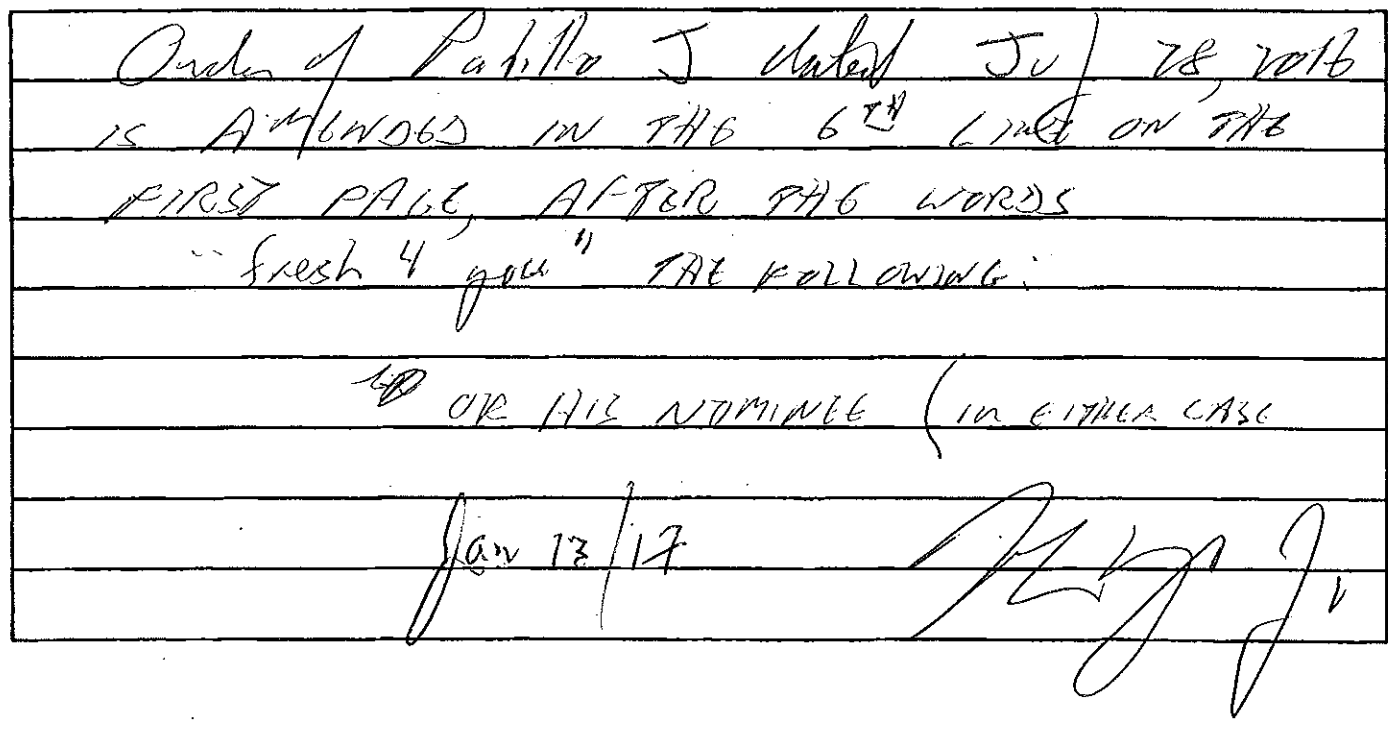 Order of Patillo J dated Jul 28, 2016
IS AMENDED IN THE 6TH LINE ON THE
FIRST PAGE, AFTER THE WORDS
"fresh 4 you" THE FOLLOWING:
OR HIS NOMINEE (IN EITHER CASE
Jan 13/17
J.